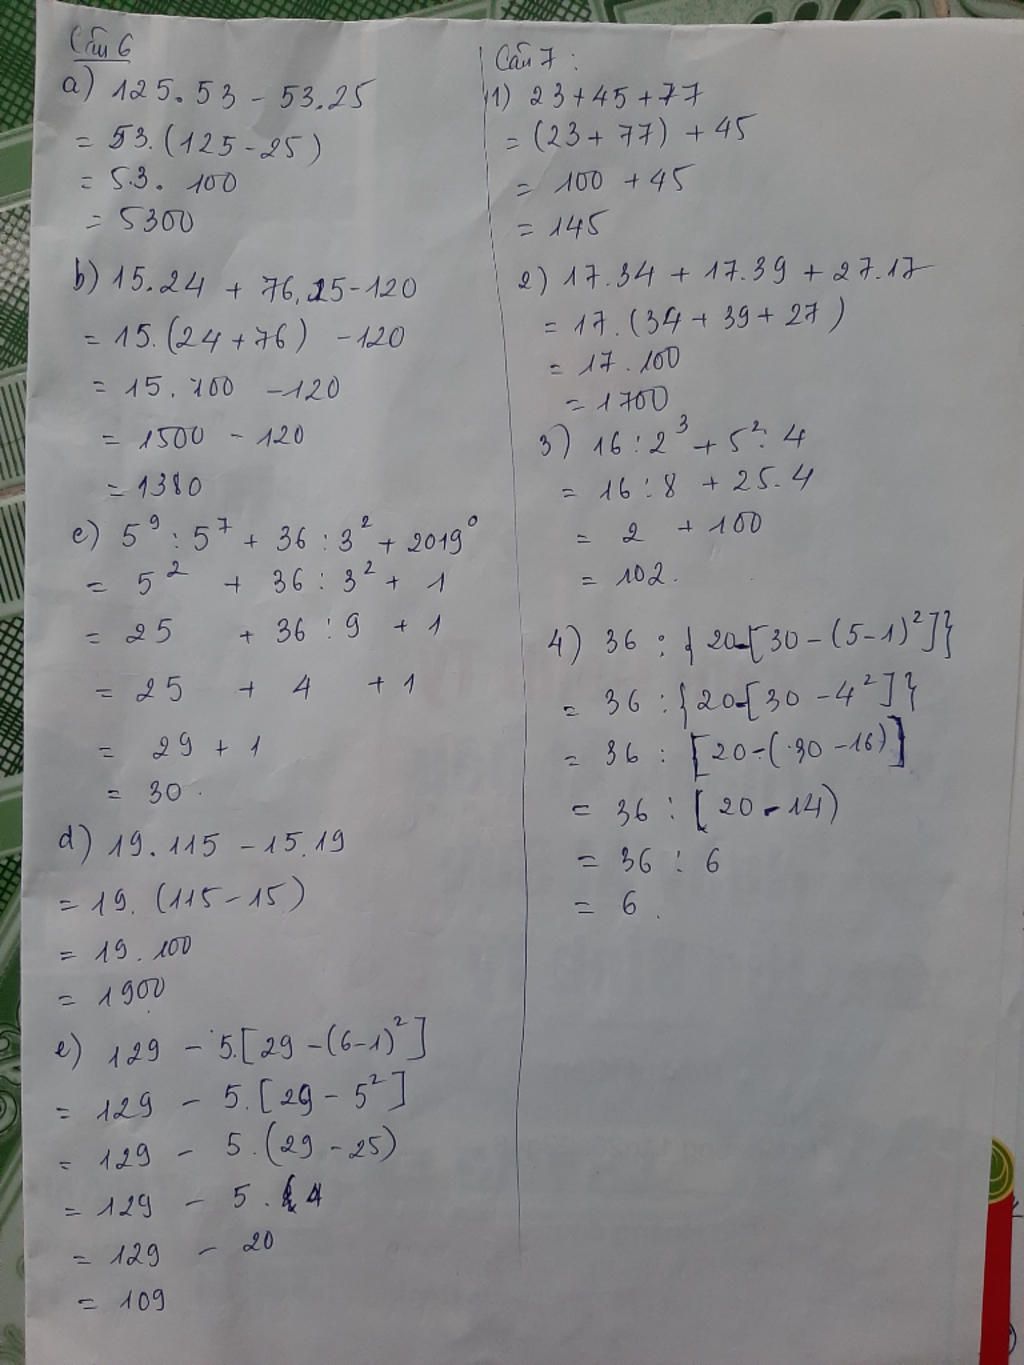 Câu 6
a) 125.53 - 53.25
= 53.(125-25)
= 53. 100
= 5300
b) 15.24 + 76.15-120
= 15.(24+76) -120
= 15.100 -120
= 1500 - 120
= 1380
c) 5⁹ : 5⁷ + 36 : 3² + 2019⁰
= 5² + 36 : 3² + 1
= 25 + 36 : 9 + 1
= 25 + 4 + 1
= 29 + 1
= 30.
d) 19.115 -15.19
= 19. (115-15)
= 19. 100
= 1900
e) 129 - 5.[29-(6-1)²]
= 129 - 5.[29- 5²]
= 129 - 5.(29-25)
= 129 - 5. 4
= 129 - 20
= 109
Câu 7 :
1) 23+45+77
= (23+ 77) + 45
= 100 +45
= 145
2) 17.34 + 17.39 + 27.17
= 17.(34+39+27)
= 17.100
= 1700
3) 16 : 2³ + 5². 4
= 16 : 8 + 25.4
= 2 + 100
= 102.
4) 36 : { 20-[30-(5-1)²]}
= 36 : {20-[30 -4²]}
= 36 : [20-(30 -16)]
= 36 : [20 - 14)
= 36 : 6
= 6.